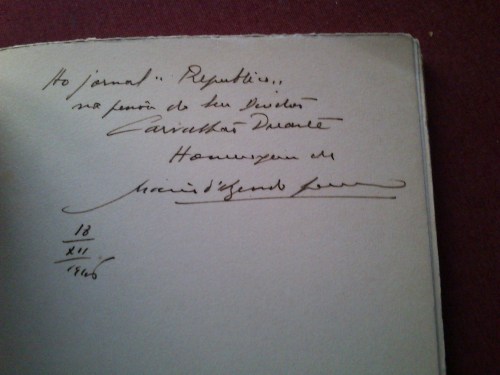 Ao jornal "República"
na pessôa do seu Director
Carvalhão Duarte
Homenagem de
Mario d'Azevedo
18
XII
1946